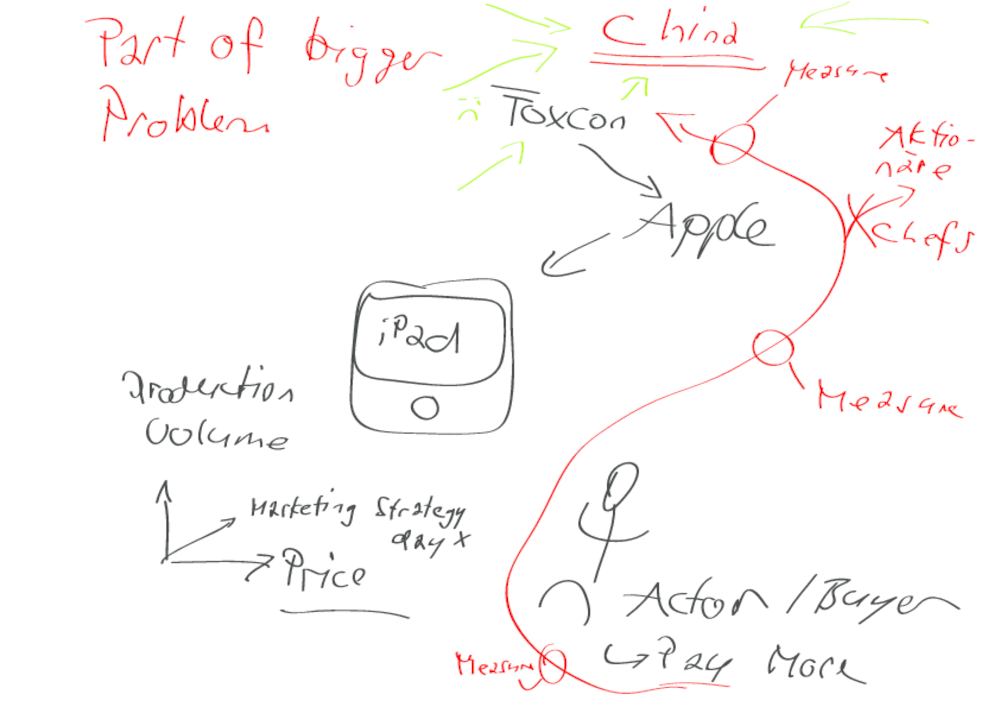 Part of bigger
Problem
China
Measure
Toxcon
Aktio-
näre
Chefs
Apple
iPad
Measure
Production
Volume
Marketing Strategy
day x
Price
Actor / Buyer
Pay More
Measure